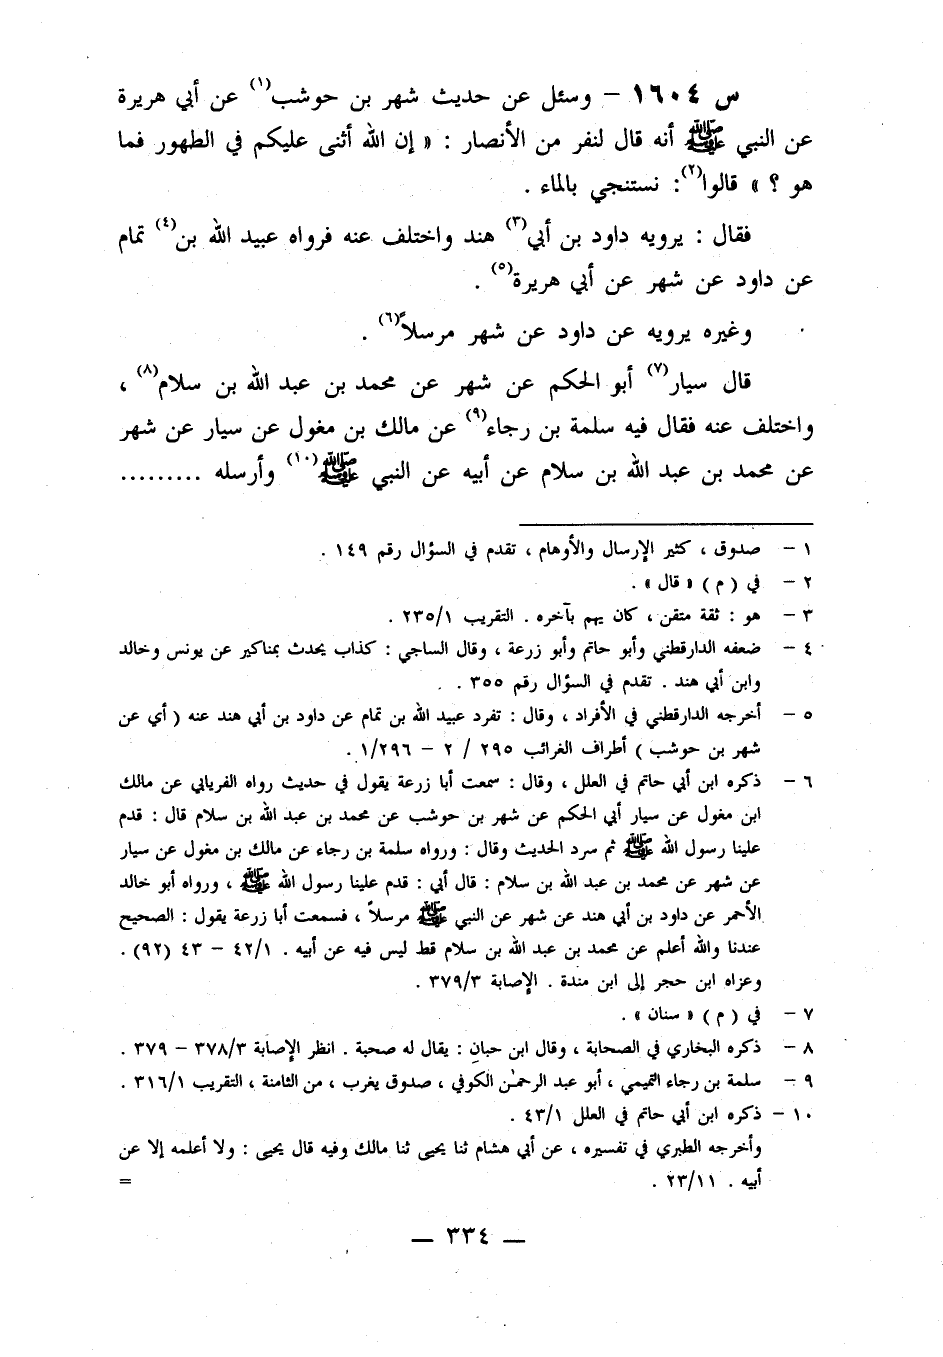 س ١٦٠٤ – وسئل عن حديث شهر بن حوشب(١) عن أبي هريرة
عن النبي ﷺ أنه قال لنفر من الأنصار : « إن الله أثنى عليكم في الطهور فما
هو ؟ » قالوا(٢): نستنجي بالماء .
فقال : يرويه داود بن أبي(٣) هند واختلف عنه فرواه عبيد الله بن(٤) تمام
عن داود عن شهر عن أبي هريرة(٥) .
وغيره يرويه عن داود عن شهر مرسلاً(٦) .
قال سيار(٧) أبو الحكم عن شهر عن محمد بن عبد الله بن سلام(٨) ،
واختلف عنه فقال فيه سلمة بن رجاء(٩) عن مالك بن مغول عن سيار عن شهر
عن محمد بن عبد الله بن سلام عن أبيه عن النبي ﷺ(١٠) وأرسله .........
١ – صدوق ، كثير الإرسال والأوهام ، تقدم في السؤال رقم ١٤٩ .
٢ – في ( م ) « قال » .
٣ – هو : ثقة متقن ، كان يهم بآخره . التقريب ٢٣٥/١ .
٤ – ضعفه الدارقطني وأبو حاتم وأبو زرعة ، وقال الساجي : كذاب يحدث بمناكير عن يونس وخالد
وابن أبي هند . تقدم في السؤال رقم ٣٥٥ .
٥ – أخرجه الدارقطني في الأفراد ، وقال : تفرد عبيد الله بن تمام عن داود بن أبي هند عنه ( أي عن
شهر بن حوشب ) أطراف الغرائب ٢٩٥ / ٢ – ١/٢٩٦ .
٦ – ذكره ابن أبي حاتم في العلل ، وقال : سمعت أبا زرعة يقول في حديث رواه الفريابي عن مالك
ابن مغول عن سيار أبي الحكم عن شهر بن حوشب عن محمد بن عبد الله بن سلام قال : قدم
علينا رسول الله ﷺ ثم سرد الحديث وقال : ورواه سلمة بن رجاء عن مالك بن مغول عن سيار
عن شهر عن محمد بن عبد الله بن سلام : قال أبي : قدم علينا رسول الله ﷺ ، ورواه أبو خالد
الأحمر عن داود بن أبي هند عن شهر عن النبي ﷺ مرسلاً ، فسمعت أبا زرعة يقول : الصحيح
عندنا والله أعلم عن محمد بن عبد الله بن سلام قط ليس فيه عن أبيه . ٤٢/١ – ٤٣ (٩٢) .
وعزاه ابن حجر إلى ابن مندة . الإصابة ٣٧٩/٣ .
٧ – في ( م ) « سنان » .
٨ – ذكره البخاري في الصحابة ، وقال ابن حبان : يقال له صحبة . انظر الإصابة ٣٧٨/٣ – ٣٧٩ .
٩ – سلمة بن رجاء التميمي ، أبو عبد الرحمٰن الكوفي ، صدوق يغرب ، من الثامنة ، التقريب ٣١٦/١ .
١٠ – ذكره ابن أبي حاتم في العلل ٤٣/١ .
وأخرجه الطبري في تفسيره ، عن أبي هشام ثنا يحيى ثنا مالك وفيه قال يحيى : ولا أعلمه إلا عن
أبيه . ٢٣/١١ . =
— ٣٣٤ —